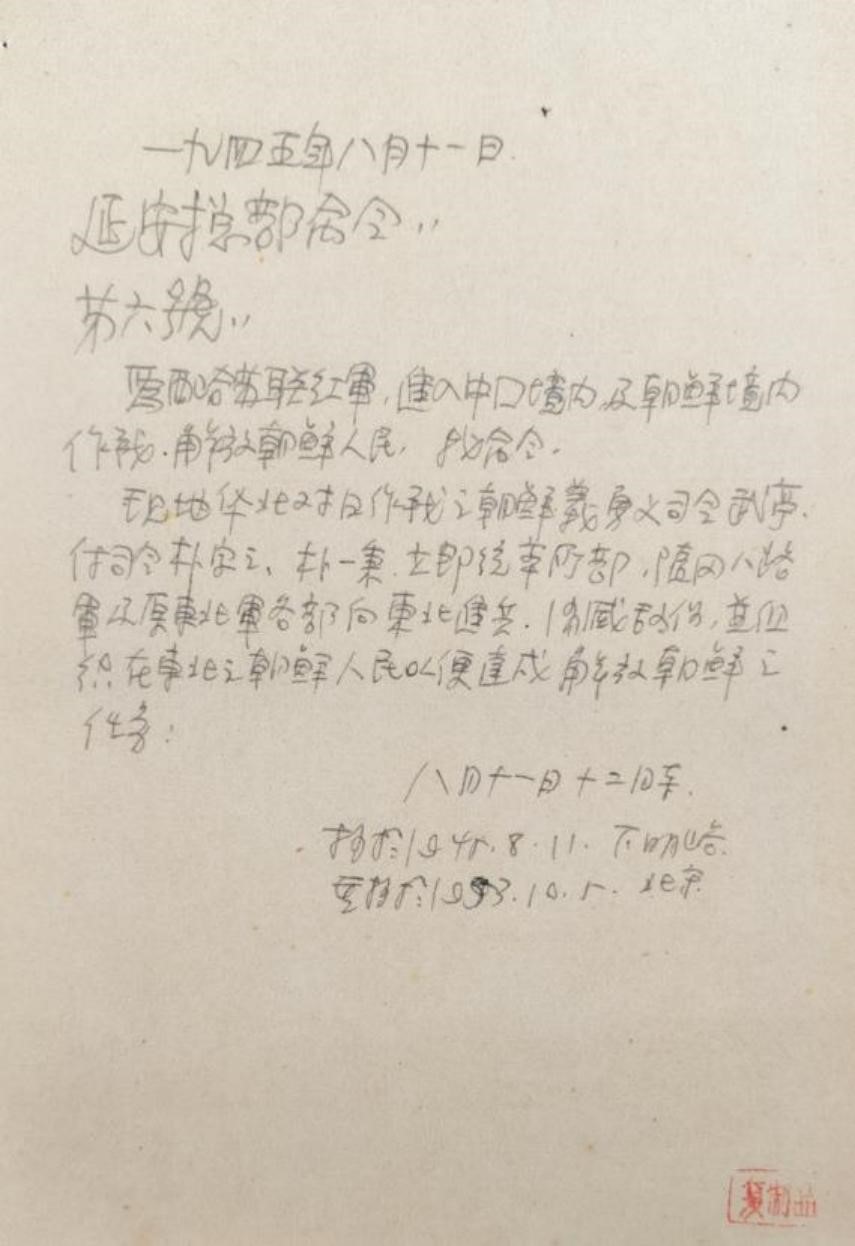 一九四五年八月十一日.
延安总部命令,,
第六號,,
爲配哈苏联红軍,進入中口境内及朝鮮境内
作战.解放朝鮮人民, 我命令.
现地华北对日作战之朝鮮義勇义司令武亭.
付司令朴、朴一 立即统率所部,随同八路
軍及原東北軍各部向東北進兵.消滅敌伪,並组
织在東北之朝鮮人民以便達成解放朝鮮之
任务:
八月十一日十二时
抄於:1945.8.11.
重抄於:1953.10.5. 北京
複制品